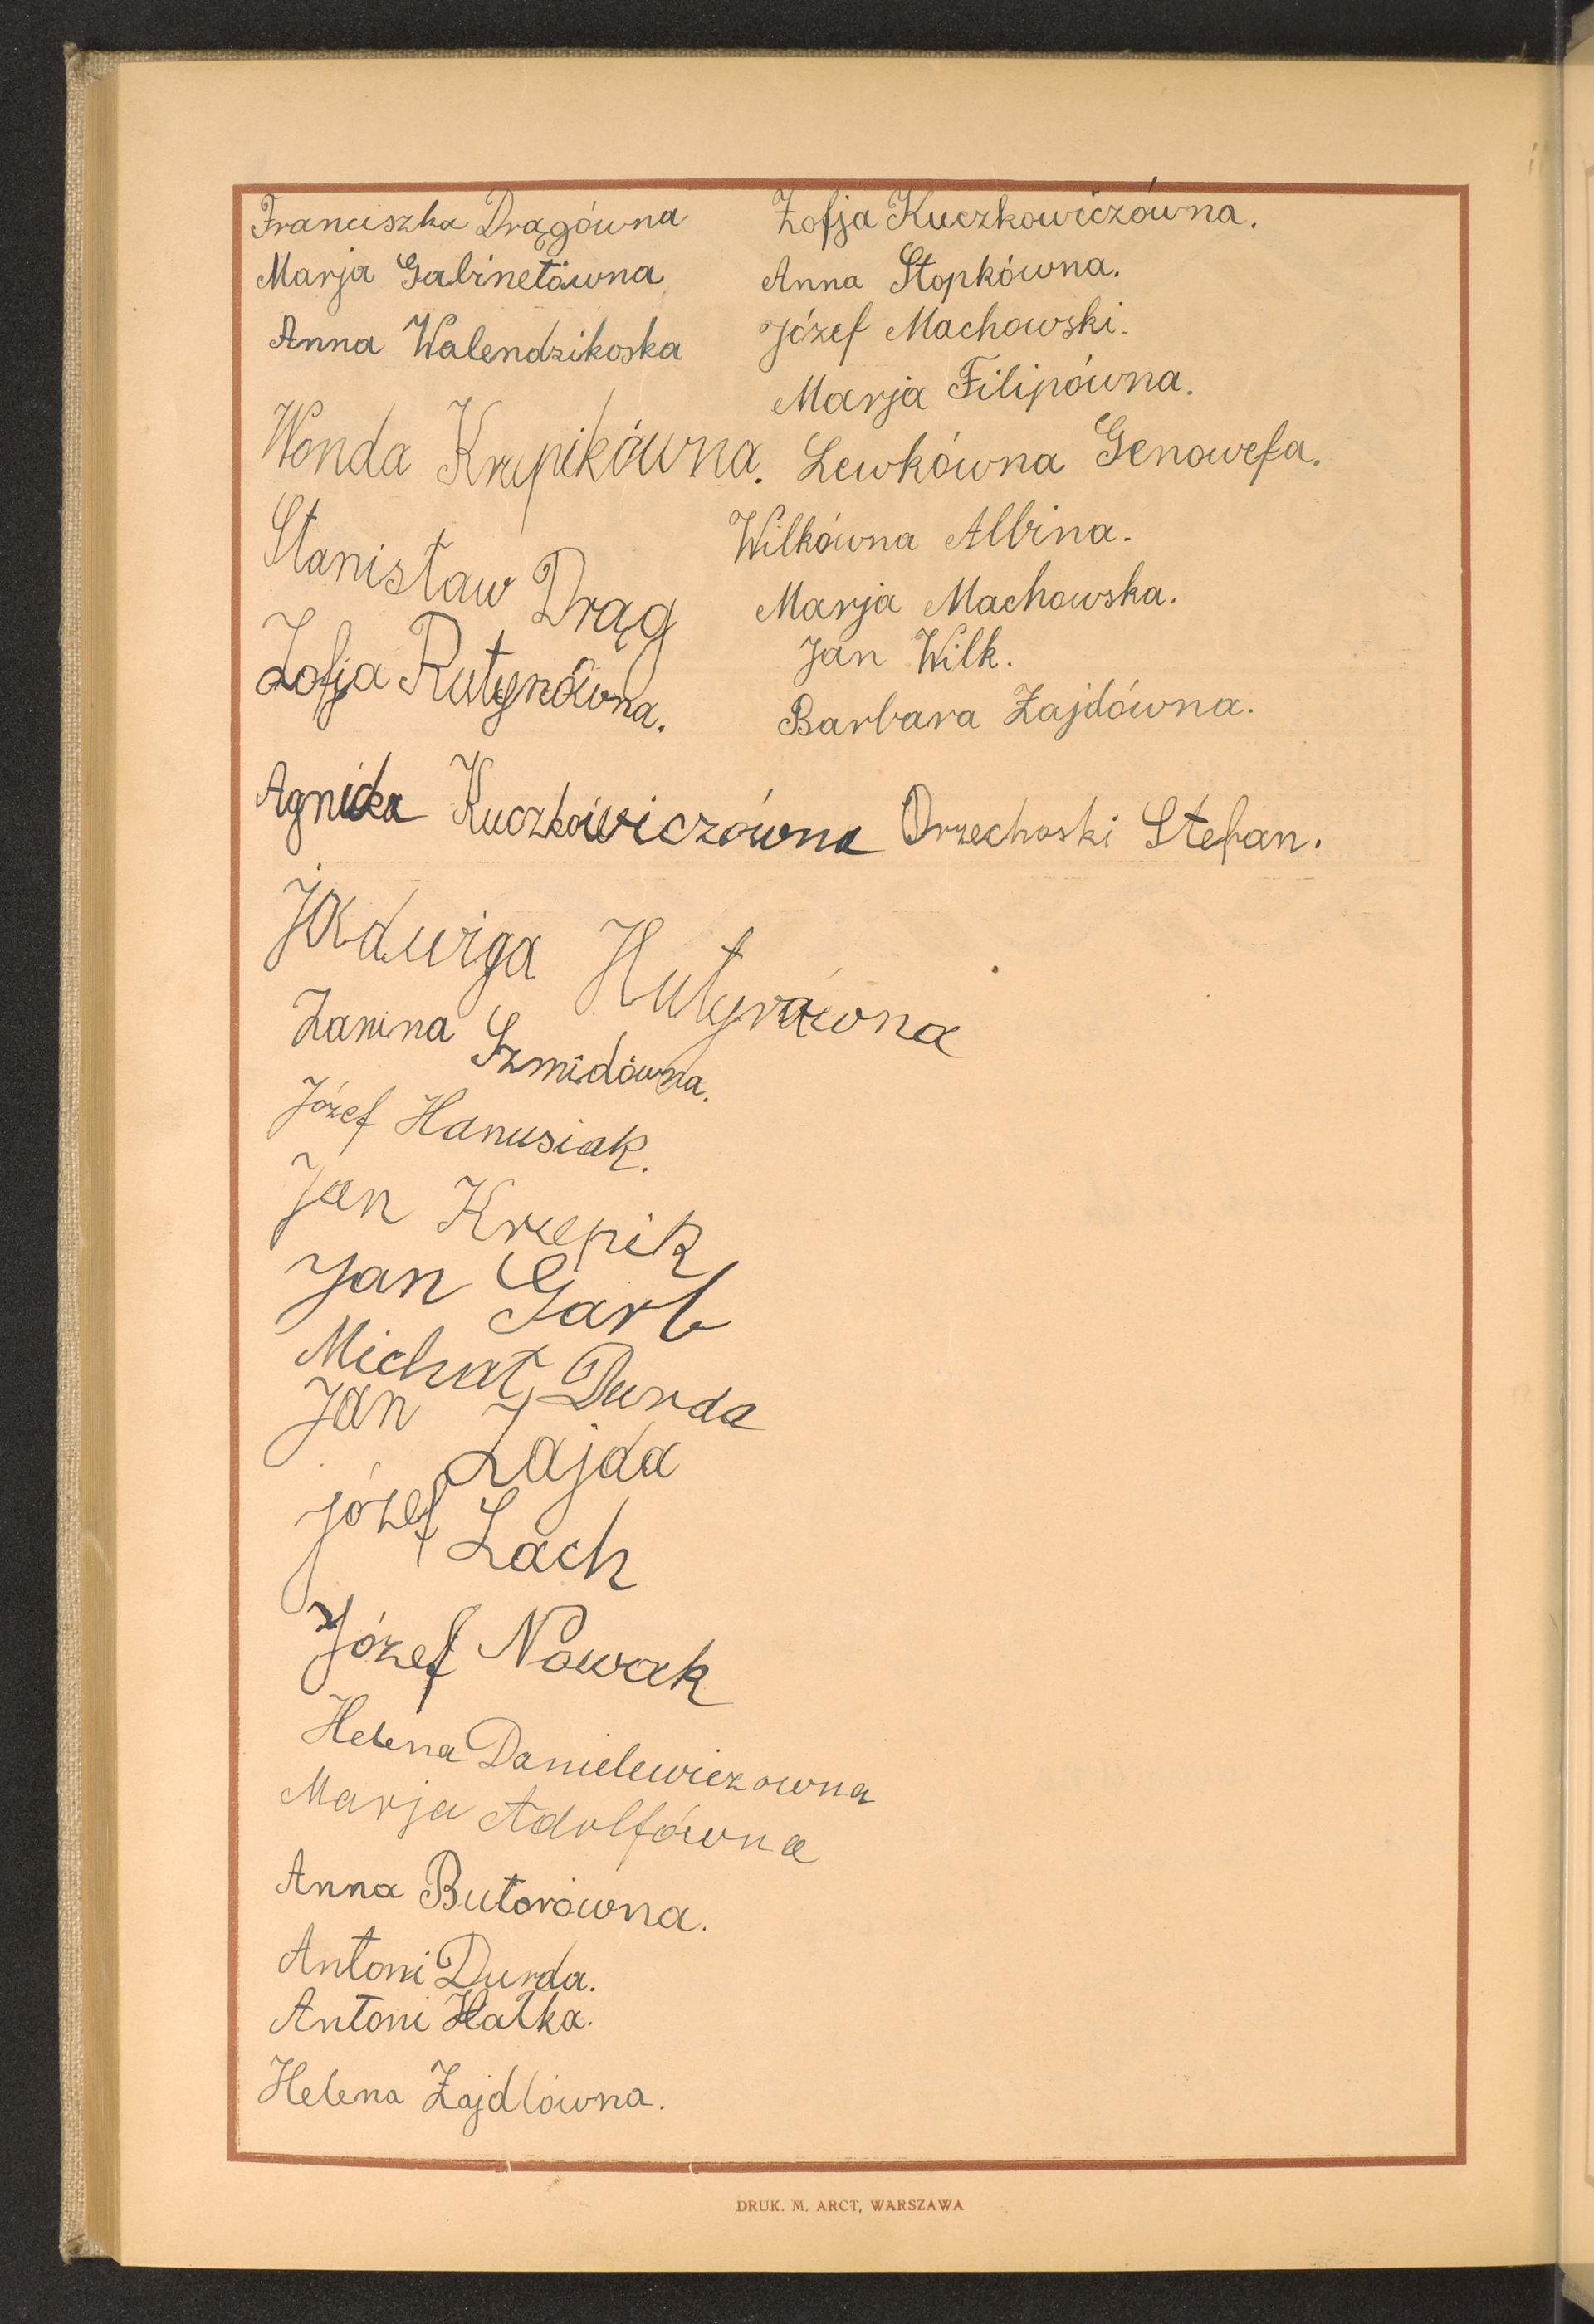 Franciszka Drągówna
Marja Gabinetówna
Anna Walendzikoska
Wonda Krupikówna.
Stanisław Drąg
Zofja Rutynówna.
Agniċka Kuczkowiczówna
Jadwiga Hutyrówna
Zanina Szmidówna.
Józef Hanusiak.
Jan Krzepik
Jan Garb
Michał Durda
Jan Zajda
józef Lach
Józef Nowak
Helena Danielewiczowna
Marja Adolfówna
Anna Butorówna.
Antoni Durda.
Antoni Hałka.
Helena Zajdlówna.
Zofja Kuczkowiczówna.
Anna Stopkówna.
Józef Machowski.
Marja Filipówna.
Lewkówna Genowefa.
Wilkówna Albina.
Marja Machowska.
Jan Wilk.
Barbara Zajdówna.
Orzechoski Stefan.
DRUK. M. ARCT, WARSZAWA